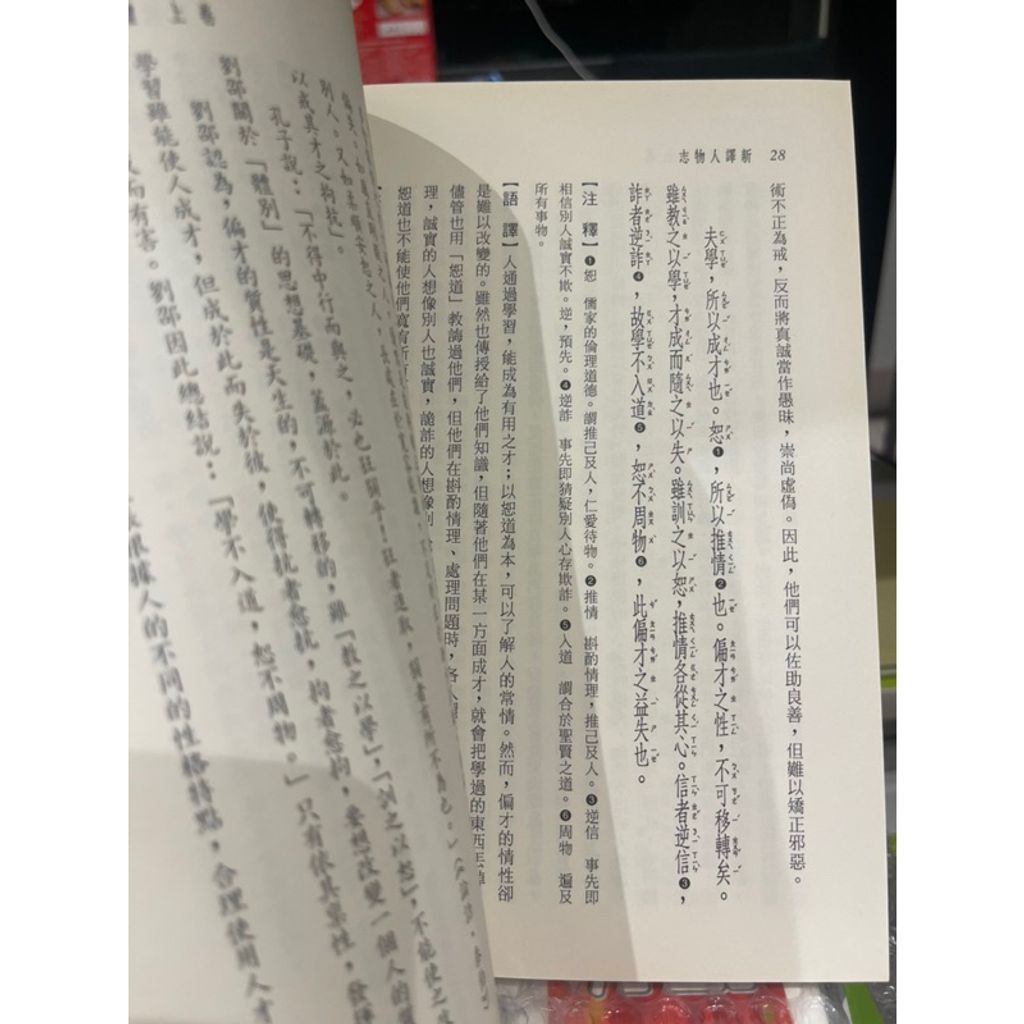 28 新譯人物志
術不正為戒，反而將真誠當作愚昧，崇尚虛偽。因此，他們可以佐助良善，但難以矯正邪惡。
夫學，所以成才也。恕❶，所以推情❷也。偏才之性，不可移轉矣。
雖教之以學，才成而隨之以失。雖訓之以恕，推情各從其心。信者逆信❸，
詐者逆詐❹，故學不入道❺，恕不周物❻，此偏才之益失也。
【注 釋】❶恕 儒家的倫理道德。謂推己及人，仁愛待物。❷推情 斟酌情理，推己及人。❸逆信 事先即
相信別人誠實不欺。逆，預先。❹逆詐 事先即猜疑別人心存欺詐。❺入道 謂合於聖賢之道。❻周物 遍及
所有事物。
【語 譯】人通過學習，能成為有用之才；以恕道為本，可以了解人的常情。然而，偏才的情性卻
是難以改變的。雖然也傳授給了他們知識，但隨著他們在某一方面成才，就會把學過的東西
儘管也用「恕道」教誨過他們，但他們在斟酌情理、處理問題時，各人
理，誠實的人想像別人也誠實，詭詐的人想像別
恕道也不能使他們寬宥所有
上卷
別人。又如
以成其才之拘抗」。
孔子說：「不得中行而與之，必也狂狷乎！狂者進取，狷者有所不為也。」
劉邵關於「體別」的思想基礎，蓋源於此。
劉邵認為，偏才的質性是天生的，不可轉移的，雖「教之以學」，「訓之以恕」，不能使之改
學習雖能使人成才，但成於此而失於彼，使得抗者愈抗，拘者愈拘，要想改變一個人的
而有害。劉邵因此總結說：「學不入道，恕不周物。」只有依其稟性，發揮
根據人的不同的性格特點，合理使用人才